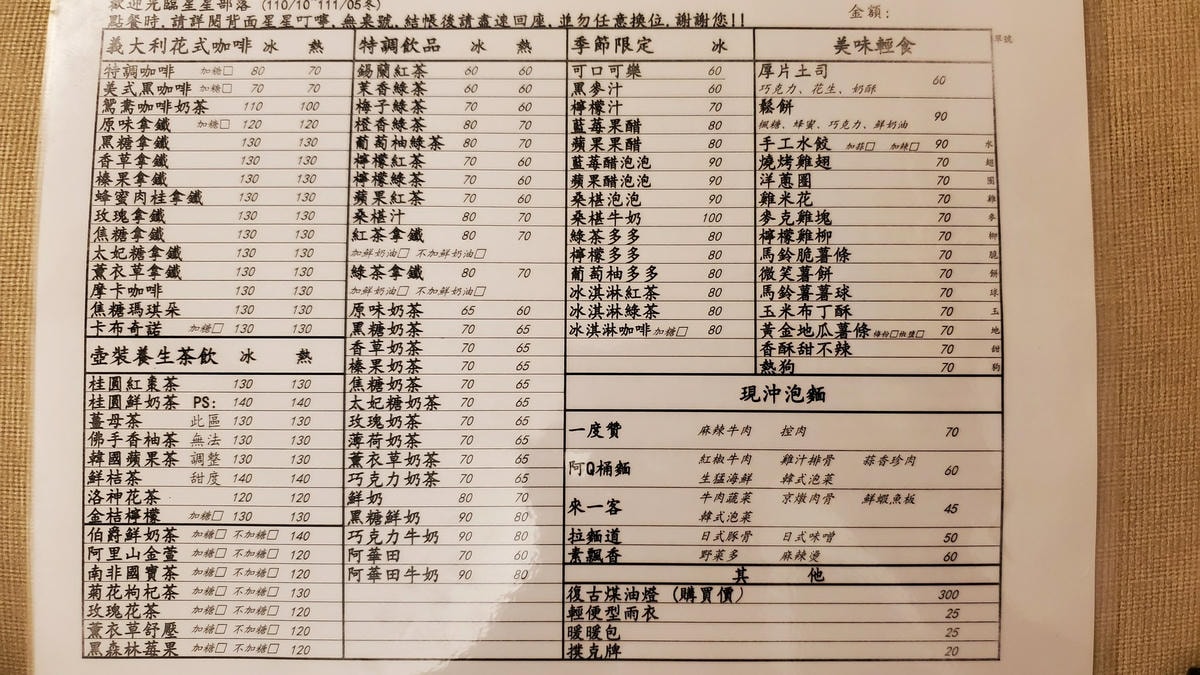 歡迎光臨星星部落 (110/10~111/05冬)
點餐時,請詳閱背面星星叮嚀,無桌號,結帳後請盡速回座,並勿任意換位,謝謝您!!
金額:
單號
義大利花式咖啡 冰 熱
特調咖啡 加糖□ 80 70
美式黑咖啡 加糖□ 70 70
鴛鴦咖啡奶茶 110 100
原味拿鐵 加糖□ 120 120
黑糖拿鐵 130 130
香草拿鐵 130 130
榛果拿鐵 130 130
蜂蜜肉桂拿鐵 130 130
玫瑰拿鐵 130 130
焦糖拿鐵 130 130
太妃糖拿鐵 130 130
薰衣草拿鐵 130 130
摩卡咖啡 130 130
焦糖瑪琪朵 130 130
卡布奇諾 加糖□ 130 130
壺裝養生茶飲 冰 熱
桂圓紅棗茶 130 130
桂圓鮮奶茶 PS: 140 140
薑母茶 此區 130 130
佛手香柚茶 無法 130 130
韓國蘋果茶 調整 130 130
鮮桔茶 甜度 140 140
洛神花茶 120 120
金桔檸檬 加糖□ 130 130
伯爵鮮奶茶 加糖□ 不加糖□ 140
阿里山金萱 加糖□ 不加糖□ 120
南非國寶茶 加糖□ 不加糖□ 120
菊花枸杞茶 加糖□ 不加糖□ 130
玫瑰花茶 加糖□ 不加糖□ 120
薰衣草舒壓 加糖□ 不加糖□ 120
黑森林莓果 加糖□ 不加糖□ 120
特調飲品 冰 熱
錫蘭紅茶 60 60
茉香綠茶 60 60
梅子綠茶 70 60
橙香綠茶 80 70
葡萄柚綠茶 80 70
檸檬紅茶 70 60
檸檬綠茶 70 60
蘋果紅茶 70 60
桑椹汁 80 70
紅茶拿鐵 80 70
加鮮奶油□ 不加鮮奶油□
綠茶拿鐵 80 70
加鮮奶油□ 不加鮮奶油□
原味奶茶 65 60
黑糖奶茶 70 65
香草奶茶 70 65
榛果奶茶 70 65
焦糖奶茶 70 65
太妃糖奶茶 70 65
玫瑰奶茶 70 65
薄荷奶茶 70 65
薰衣草奶茶 70 65
巧克力奶茶 70 65
鮮奶 80 70
黑糖鮮奶 90 80
巧克力牛奶 90 80
阿華田 70 60
阿華田牛奶 90 80
季節限定 冰
可口可樂 60
黑麥汁 60
檸檬汁 70
藍莓果醋 80
蘋果果醋 80
藍莓醋泡泡 90
蘋果醋泡泡 90
桑椹泡泡 90
桑椹牛奶 100
綠茶多多 80
檸檬多多 80
葡萄柚多多 80
冰淇淋紅茶 80
冰淇淋綠茶 80
冰淇淋咖啡 加糖□ 80
美味輕食
厚片土司 60
巧克力、花生、奶酥
鬆餅 90
楓糖、蜂蜜、巧克力、鮮奶油
手工水餃 加蒜□ 加辣□ 90 水
燒烤雞翅 70 翅
洋蔥圈 70 圈
雞米花 70 雞
麥克雞塊 70 麥
檸檬雞柳 70 柳
馬鈴脆薯條 70 脆
微笑薯餅 70 餅
馬鈴薯薯球 70 球
玉米布丁酥 70 玉
黃金地瓜薯條 梅粉□椒鹽□ 70 地
香酥甜不辣 70 甜
熱狗 70 狗
現沖泡麵
一度贊 麻辣牛肉 控肉 70
阿Q桶麵 紅椒牛肉 雞汁排骨 蒜香珍肉 60
生猛海鮮 韓式泡菜
來一客 牛肉蔬菜 京燉肉骨 鮮蝦魚板 45
韓式泡菜
拉麵道 日式豚骨 日式味噌 50
素飄香 野菜多 麻辣燙 60
其 他
復古煤油燈 (購買價) 300
輕便型雨衣 25
暖暖包 25
撲克牌 20